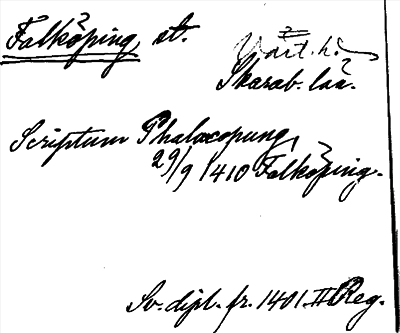 Falköping, st. Vart. h.
Skarab. län.
Scriptum Phalacopung,
29/9 1410 Falköping.
Sv. dipl. fr. 1401. II Reg.